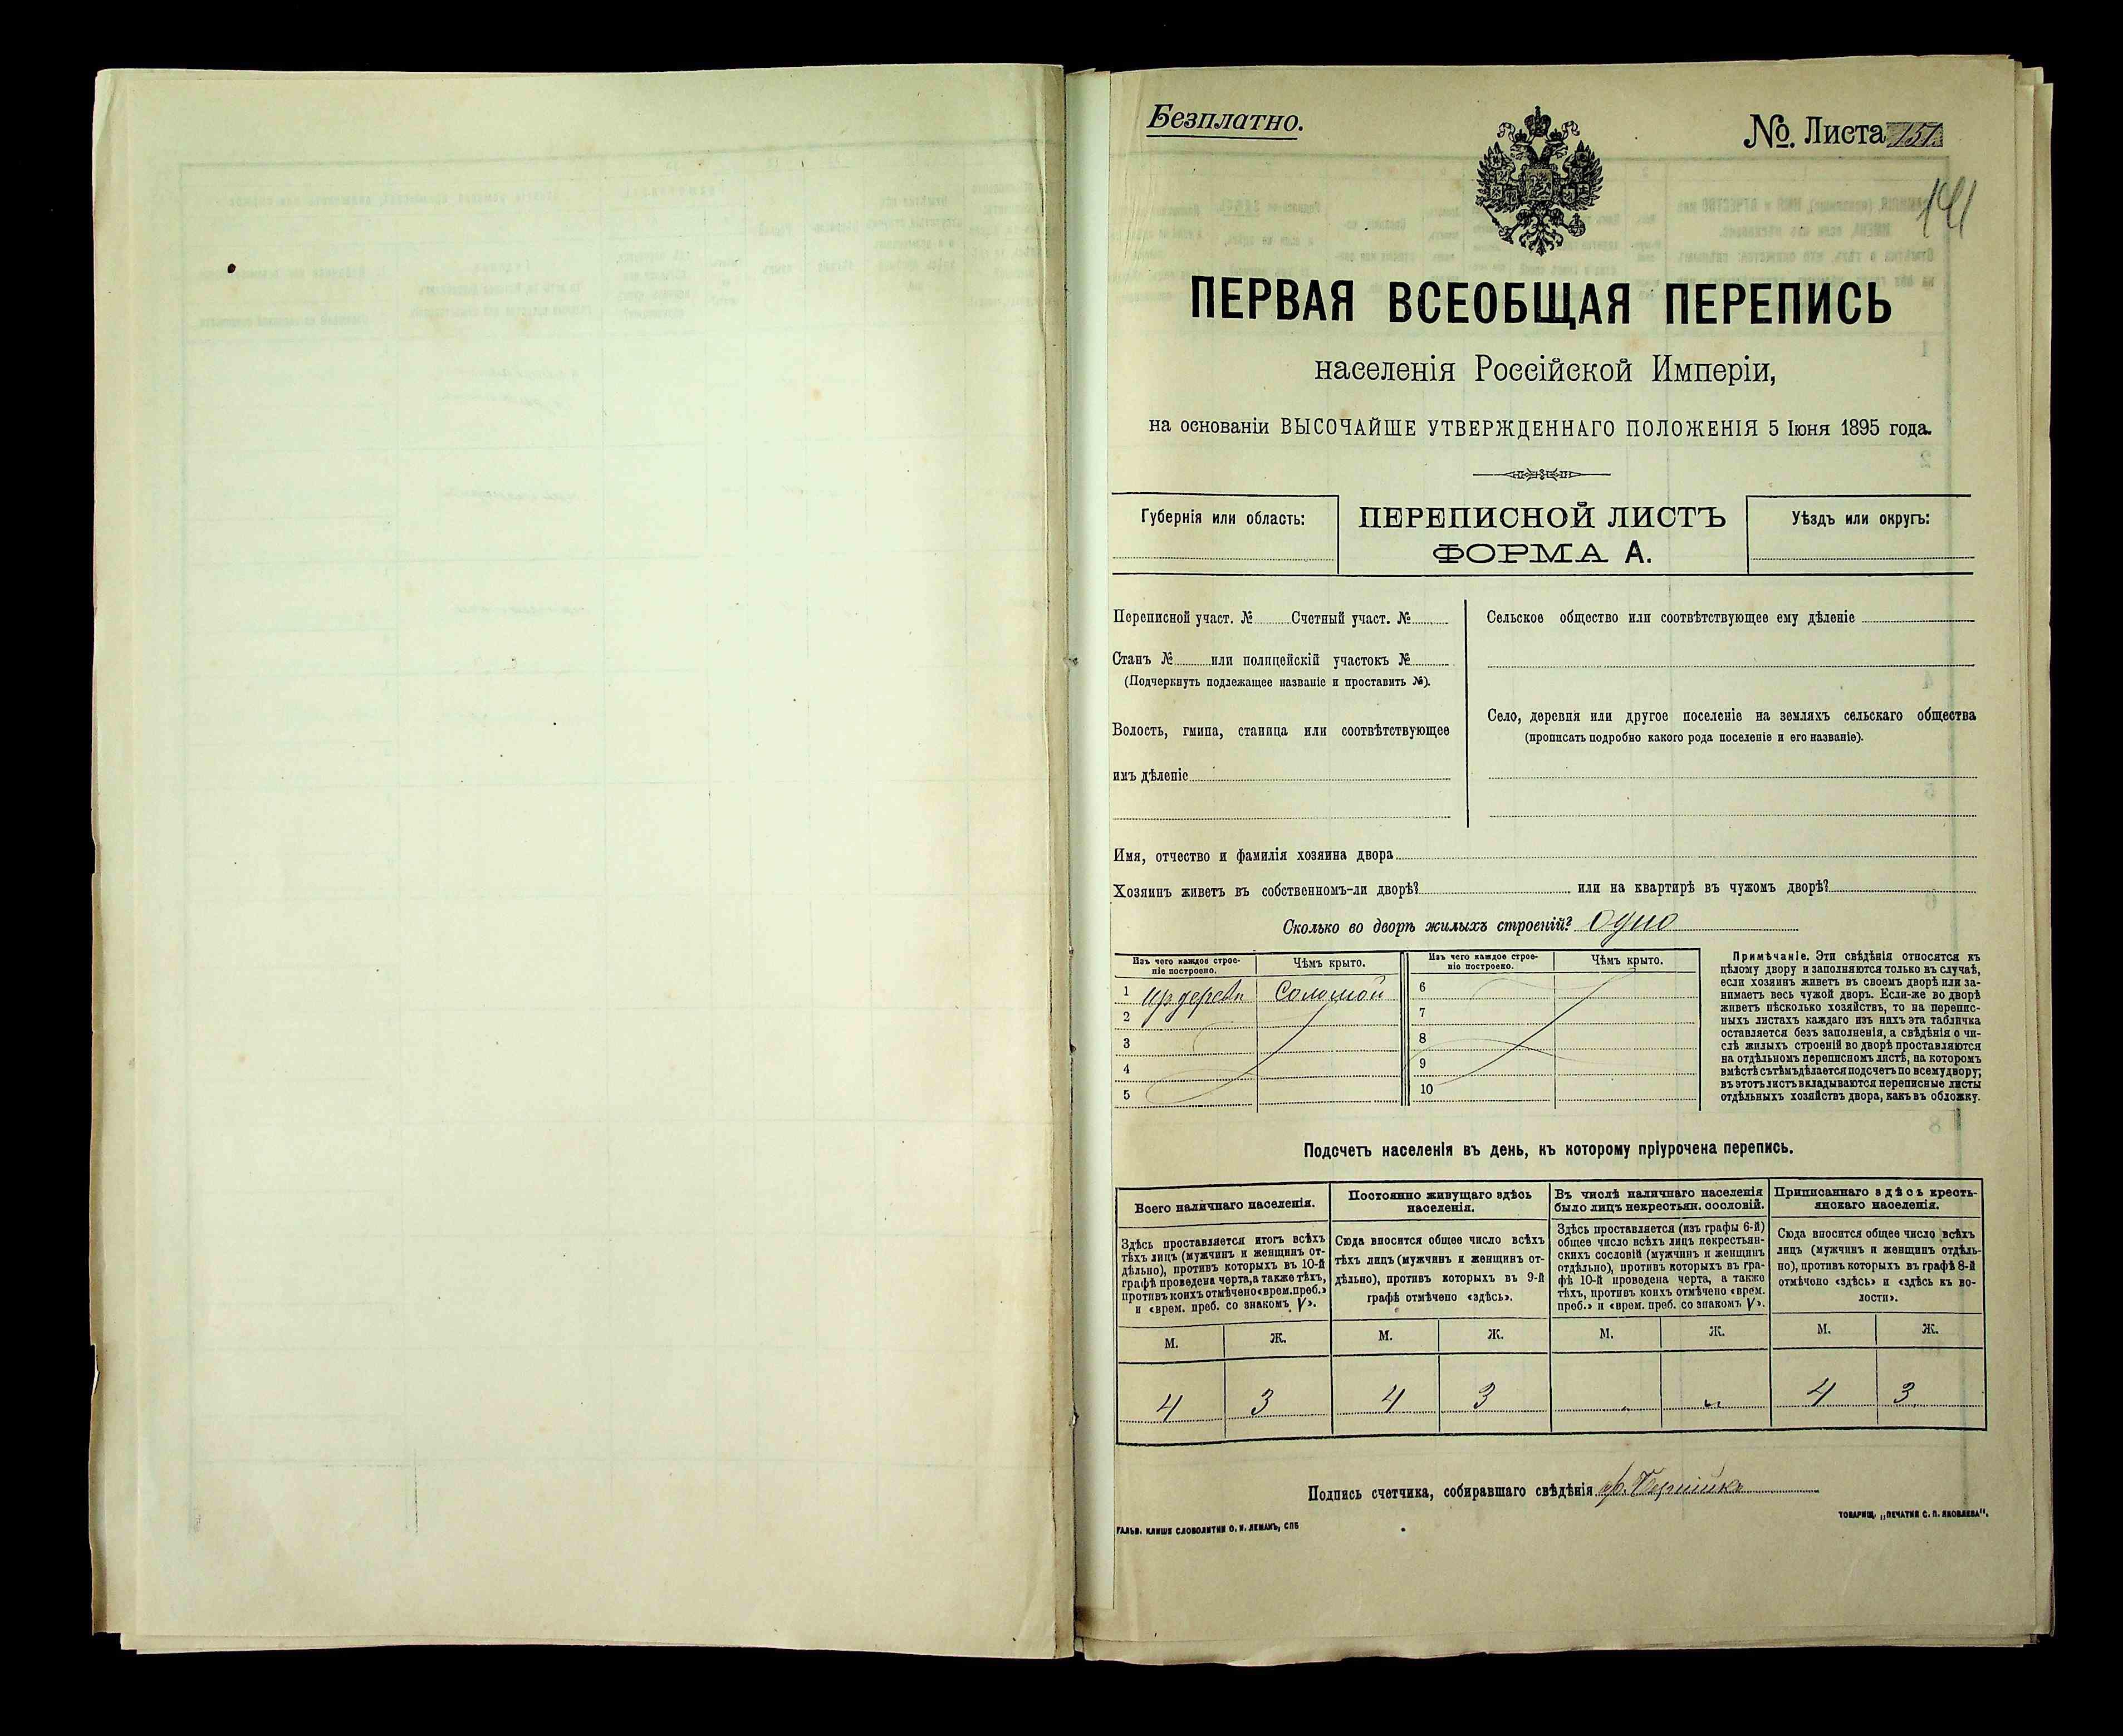 Безплатно.
№. Листа 151.
141
ПЕРВАЯ ВСЕОБЩАЯ ПЕРЕПИСЬ
населенія Россійской Имперіи,
на основаніи ВЫСОЧАЙШЕ УТВЕРЖДЕННАГО ПОЛОЖЕНІЯ 5 Іюня 1895 года.
Губернія или область:
ПЕРЕПИСНОЙ ЛИСТЪ
ФОРМА А.
Уѣздъ или округъ:
Переписной участ. № Счетный участ. №
Станъ № или полицейскій участокъ №
(Подчеркнуть подлежащее названіе и проставить №).
Волость, гмина, станица или соотвѣтствующее
имъ дѣленіе
Сельское общество или соотвѣтствующее ему дѣленіе
Село, деревня или другое поселеніе на земляхъ сельскаго общества
(прописать подробно какого рода поселеніе и его названіе).
Имя, отчество и фамилія хозяина двора
Хозяинъ живетъ въ собственномъ-ли дворѣ? или на квартирѣ въ чужомъ дворѣ?
Сколько во дворѣ жилыхъ строеній? Одно
Изъ чего каждое строе-
ніе построено.
Чѣмъ крыто.
Изъ чего каждое строе-
ніе построено.
Чѣмъ крыто.
1 Соломой
2
3
4
5
6
7
8
9
10
Примѣчаніе. Эти свѣдѣнія относятся къ
цѣлому двору и заполняются только въ случаѣ,
если хозяинъ живетъ въ своемъ дворѣ или за-
нимаетъ весь чужой дворъ. Если-же во дворѣ
живетъ нѣсколько хозяйствъ, то на перепис-
ныхъ листахъ каждаго изъ нихъ эта табличка
оставляется безъ заполненія, а свѣдѣнія о чи-
слѣ жилыхъ строеній во дворѣ проставляются
на отдѣльномъ переписномъ листѣ, на которомъ
вмѣстѣ съ тѣмъ дѣлается подсчетъ по всему двору;
въ этотъ листъ вкладываются переписные листы
отдѣльныхъ хозяйствъ двора, какъ въ обложку.
Подсчетъ населенія въ день, къ которому пріурочена перепись.
Всего наличнаго населенія.
Здѣсь проставляется итогъ всѣхъ
тѣхъ лицъ (мужчинъ и женщинъ от-
дѣльно), противъ которыхъ въ 10-й
графѣ проведена черта, а также тѣхъ,
противъ коихъ отмѣчено «врем. преб.»
и «врем. преб. со знакомъ V».
М. Ж.
4 3
Постоянно живущаго здѣсь
населенія.
Сюда вносится общее число всѣхъ
тѣхъ лицъ (мужчинъ и женщинъ от-
дѣльно), противъ которыхъ въ 9-й
графѣ отмѣчено «здѣсь».
М. Ж.
4 3
Въ числѣ наличнаго населенія
было лицъ некрестьян. сословій.
Здѣсь проставляется (изъ графы 6-й)
общее число всѣхъ лицъ некрестьян-
скихъ сословій (мужчинъ и женщинъ
отдѣльно), противъ которыхъ въ гра-
фѣ 10-й проведена черта, а также
тѣхъ, противъ коихъ отмѣчено «врем.
преб.» и «врем. преб. со знакомъ V».
М. Ж.
" "
Приписаннаго здѣсь кресть-
янскаго населенія.
Сюда вносится общее число всѣхъ
лицъ (мужчинъ и женщинъ отдѣль-
но), противъ которыхъ въ графѣ 8-й
отмѣчено «здѣсь» и «здѣсь къ во-
лости».
М. Ж.
4 3
Подпись счетчика, собиравшаго свѣдѣнія
ГАЛЬВ. КЛИШЕ СЛОВОЛИТНИ О. И. ЛЕМАНЪ, СПБ
ТОВАРИЩ. „ПЕЧАТНЯ С. П. ЯКОВЛЕВА".